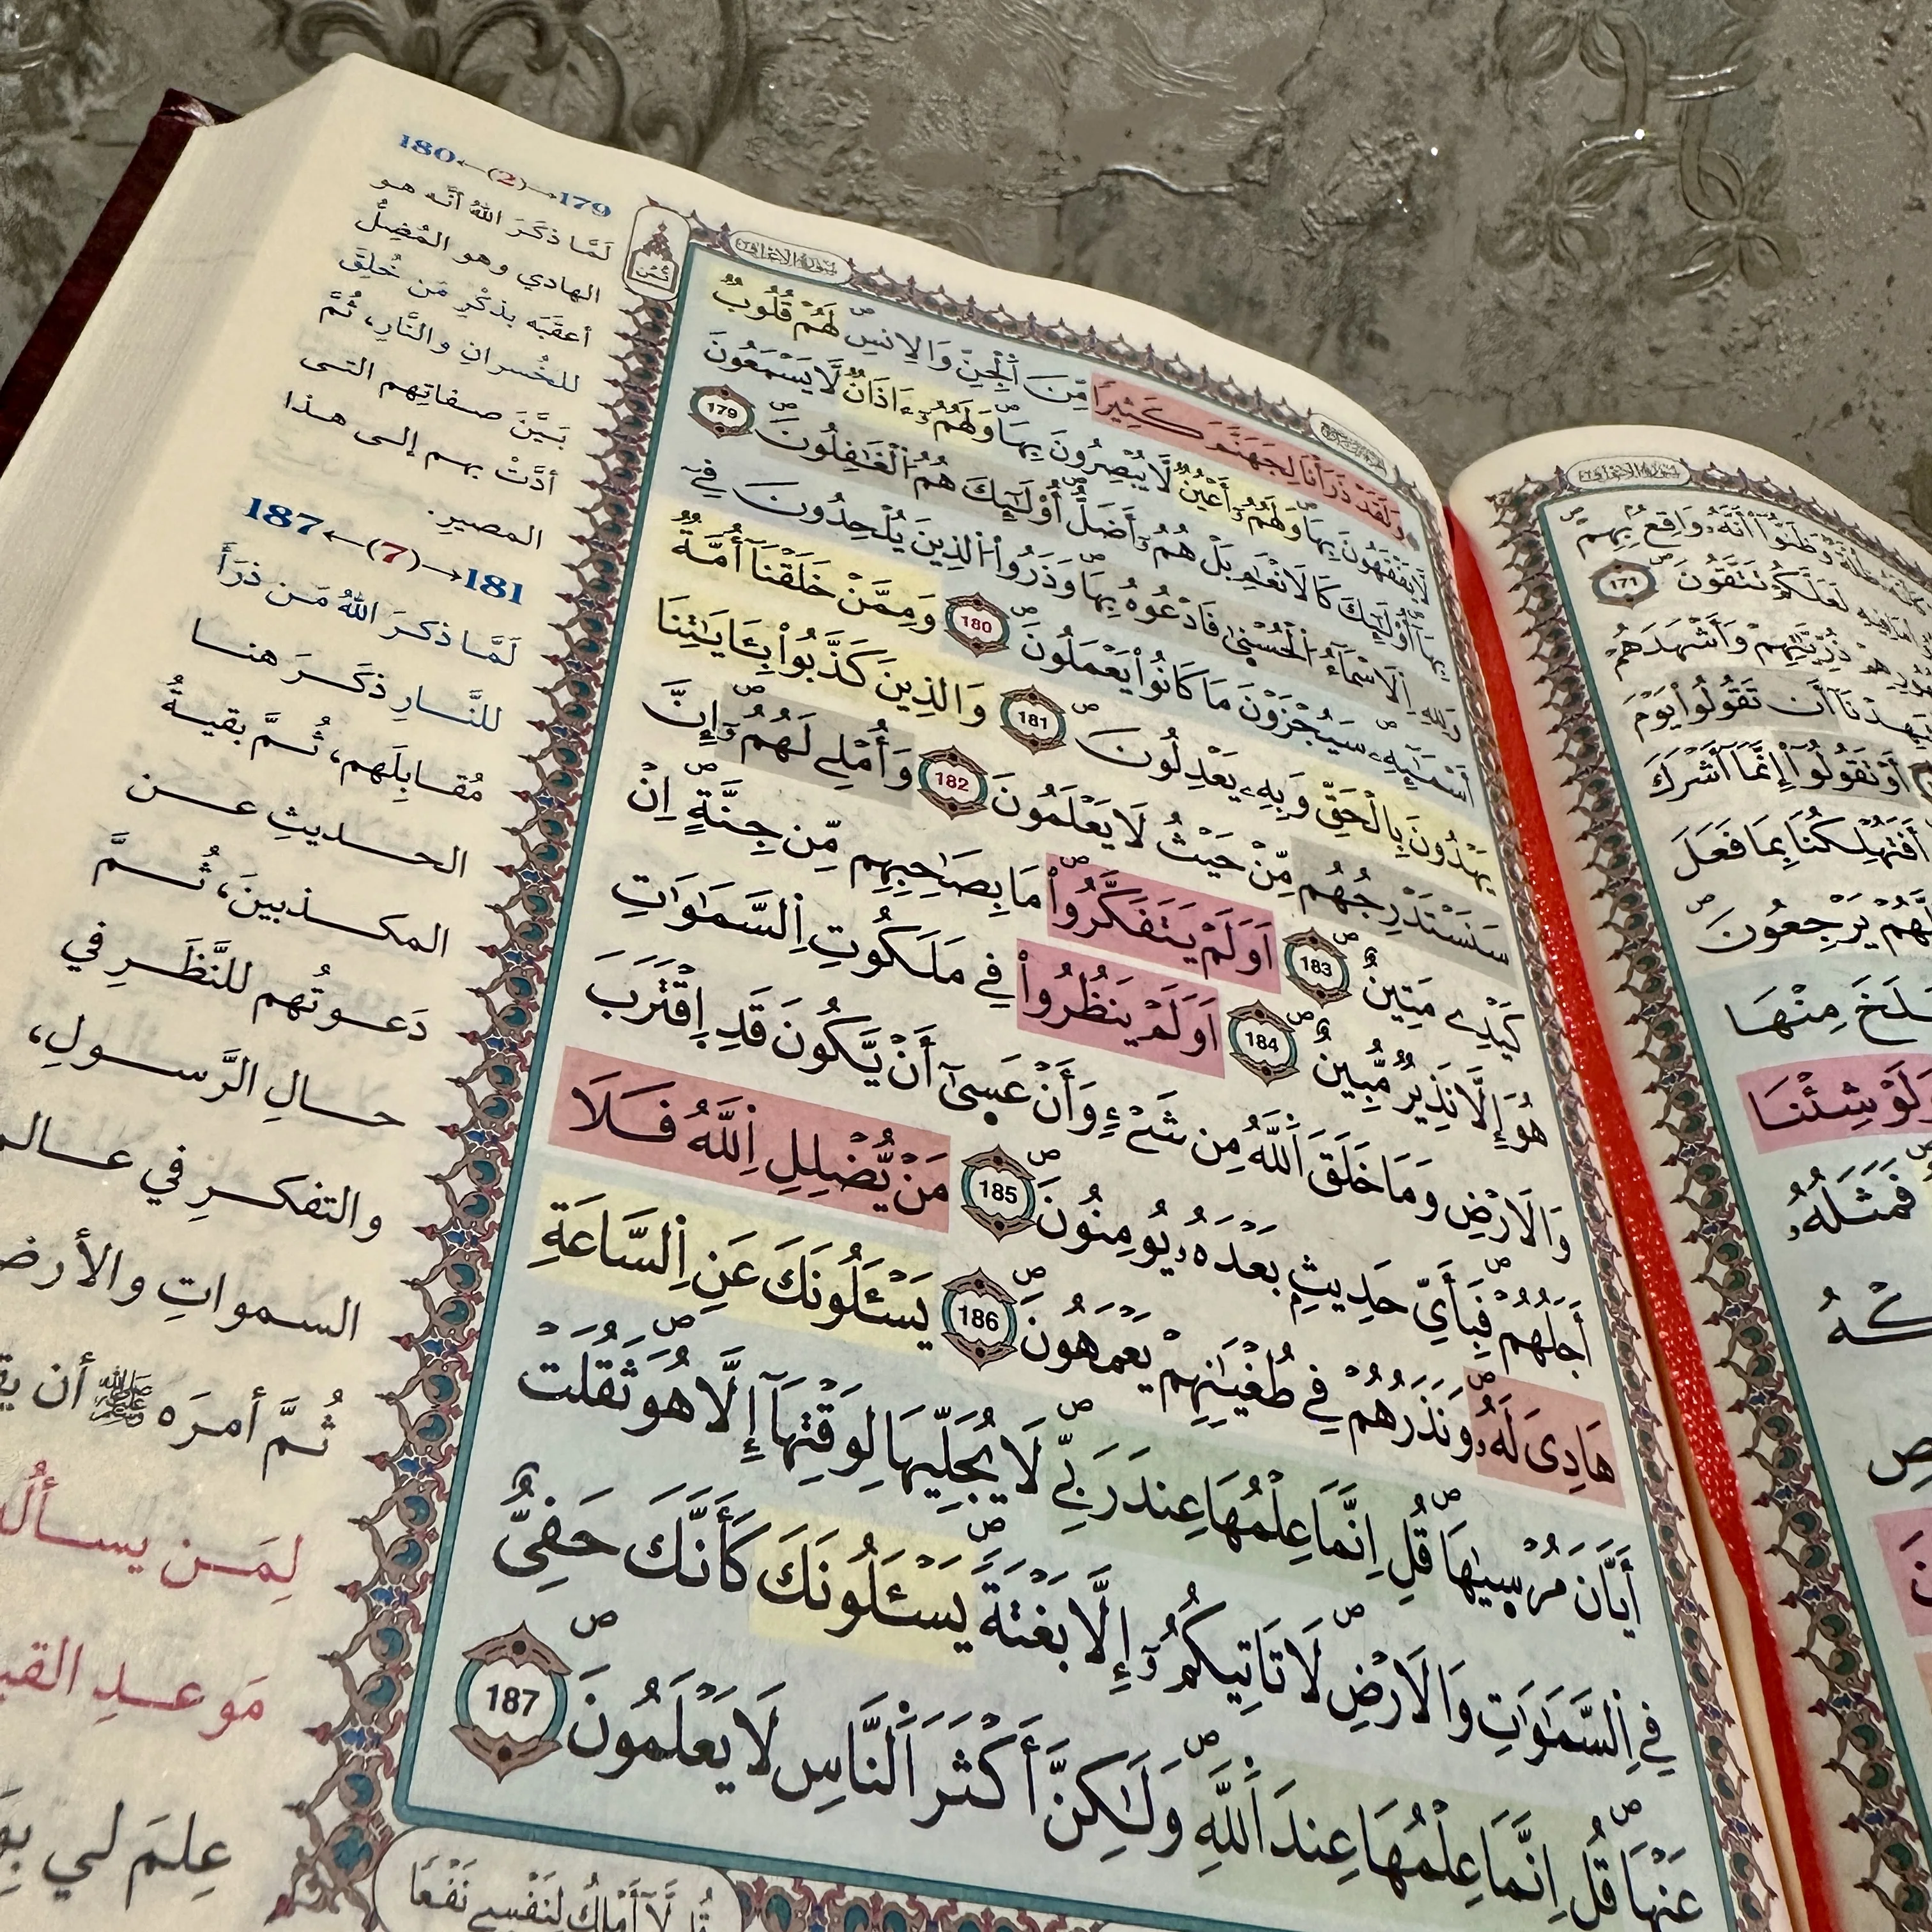 سُورَةُ الأَعْرَافِ
ثُمُن
وَلَقَدْ ذَرَأْنَا لِجَهَنَّمَ كَثِيرًا مِّنَ اَ۬لْجِنِّ وَالِانسِ لَهُمْ قُلُوبٌ
لَّا يَفْقَهُونَ بِهَا وَلَهُمُۥٓ أَعْيُنٌ لَّا يُبْصِرُونَ بِهَا وَلَهُمُۥٓ ءَاذَانٌ لَّا يَسْمَعُونَ
بِهَا أُوْلَٰٓئِكَ كَالَانْعَٰمِ بَلْ هُمُۥٓ أَضَلُّ أُوْلَٰٓئِكَ هُمُ اُ۬لْغَٰفِلُونَ 179
وَلِلهِ اِ۬لَاسْمَآءُ اُ۬لْحُسْن۪ىٰ فَادْعُوهُ بِهَا وَذَرُواْ اُ۬لذِينَ يُلْحِدُونَ فِےٓ
أَسْمَٰٓئِهِۦ سَيُجْزَوْنَ مَا كَانُواْ يَعْمَلُونَ 180 وَمِمَّنْ خَلَقْنَآ أُمَّةٌ
يَهْدُونَ بِالْحَقِّ وَبِهِۦ يَعْدِلُونَ 181 وَالذِينَ كَذَّبُواْ بِـَٔايَٰتِنَا
سَنَسْتَدْرِجُهُم مِّنْ حَيْثُ لَا يَعْلَمُونَ 182 وَأُمْلِے لَهُمُۥٓ إِنَّ
كَيْدِے مَتِينٌ 183 اَوَلَمْ يَتَفَكَّرُواْ مَا بِصَاحِبِهِم مِّن جِنَّةٍ اِنْ
هُوَ إِلَّا نَذِيرٌ مُّبِينٌ 184 اَوَلَمْ يَنظُرُواْ فِے مَلَكُوتِ اِ۬لسَّمَٰوَٰتِ
وَالَارْضِ وَمَا خَلَقَ اَ۬للَّهُ مِن شَےْءٍ وَأَنْ عَس۪ىٰٓ أَنْ يَّكُونَ قَدِ اِ۪قْتَرَبَ
أَجَلُهُمْ فَبِأَيِّ حَدِيثِۭ بَعْدَهُۥ يُومِنُونَ 185 مَنْ يُّضْلِلِ اِ۬للَّهُ فَلَا
هَادِىَ لَهُۥ وَنَذَرُهُمْ فِے طُغْيَٰنِهِمْ يَعْمَهُونَ 186 يَسْـَٔلُونَكَ عَنِ اِ۬لسَّاعَةِ
أَيَّانَ مُرْس۪ىٰهَا قُلِ اِنَّمَا عِلْمُهَا عِندَ رَبِّے لَا يُجَلِّيهَا لِوَقْتِهَآ إِلَّا هُوَ ثَقُلَتْ
فِے اِ۬لسَّمَٰوَٰتِ وَالَارْضِ لَا تَاتِيكُمُۥٓ إِلَّا بَغْتَةً يَسْـَٔلُونَكَ كَأَنَّكَ حَفِيٌّ
عَنْهَا قُلِ اِنَّمَا عِلْمُهَا عِندَ اَ۬للَّهِ وَلَٰكِنَّ أَكْثَرَ اَ۬لنَّاسِ لَا يَعْلَمُونَ 187
قُل لَّآ أَمْلِكُ لِنَفْسِے نَفْعًا
180←(2)→179
لَمَّا ذكَرَ اللهُ أنَّه هو
الهادي وهو المُضِلُّ
أعقَبَه بذكْرِ مَن خُلِقَ
للخُسرانِ والنَّارِ، ثُمَّ
بَيَّنَ صفاتِهم التي
أدَّتْ بهم إلى هذا
المصيرِ.
187←(7)→181
لَمَّا ذكرَ اللهُ مَن ذرَأَ
للنَّارِ ذكَرَ هنا
مُقابِلَهم، ثُمَّ بقيةُ
الحديثِ عن
المكذبينَ، ثُمَّ
دَعوتُهم للنَّظَرِ في
حالِ الرَّسولِ،
والتفكرِ في عالم
السمواتِ والأرض
ثُمَّ أمرَه ﷺ أن
لِمَن يسألُ
مَوعدِ
عِلمَ لي
سُورَةُ الأَعْرَافِ
وَظَنُّوٓاْ أَنَّهُۥ وَاقِعٌۢ بِهِمْ
لَعَلَّكُمْ تَتَّقُونَ 171
ذُرِّيَّٰتِهِمْ وَأَشْهَدَهُمْ
أَن تَقُولُواْ يَوْمَ
أَوْ تَقُولُوٓاْ إِنَّمَآ أَشْرَكَ
أَفَتُهْلِكُنَا بِمَا فَعَلَ
يَرْجِعُونَ
مِنْهَا
وَلَوْ شِئْنَا
فَمَثَلُهُۥ